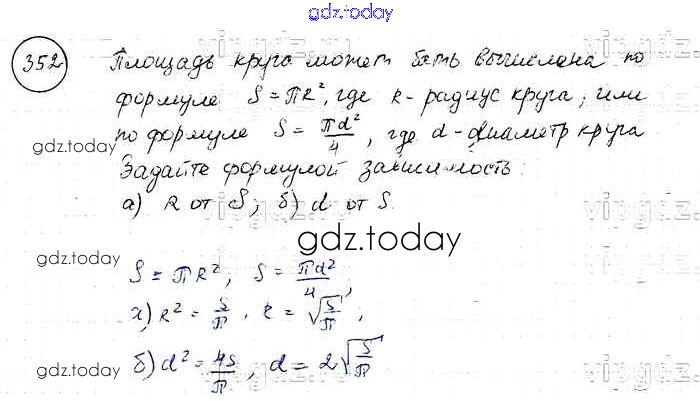 gdz.today
352 Площадь круга может быть вычислена по
формуле S = πR², где R - радиус круга; или
по формуле S = πd²/4, где d - диаметр круга
gdz.today
Задайте формулой зависимость:
а) R от S; б) d от S.
gdz.today
S = πR², S = πd²/4,
gdz.today
а) R² = S/π, R = √(S/π);
б) d² = 4S/π, d = 2√(S/π)
gdz.today